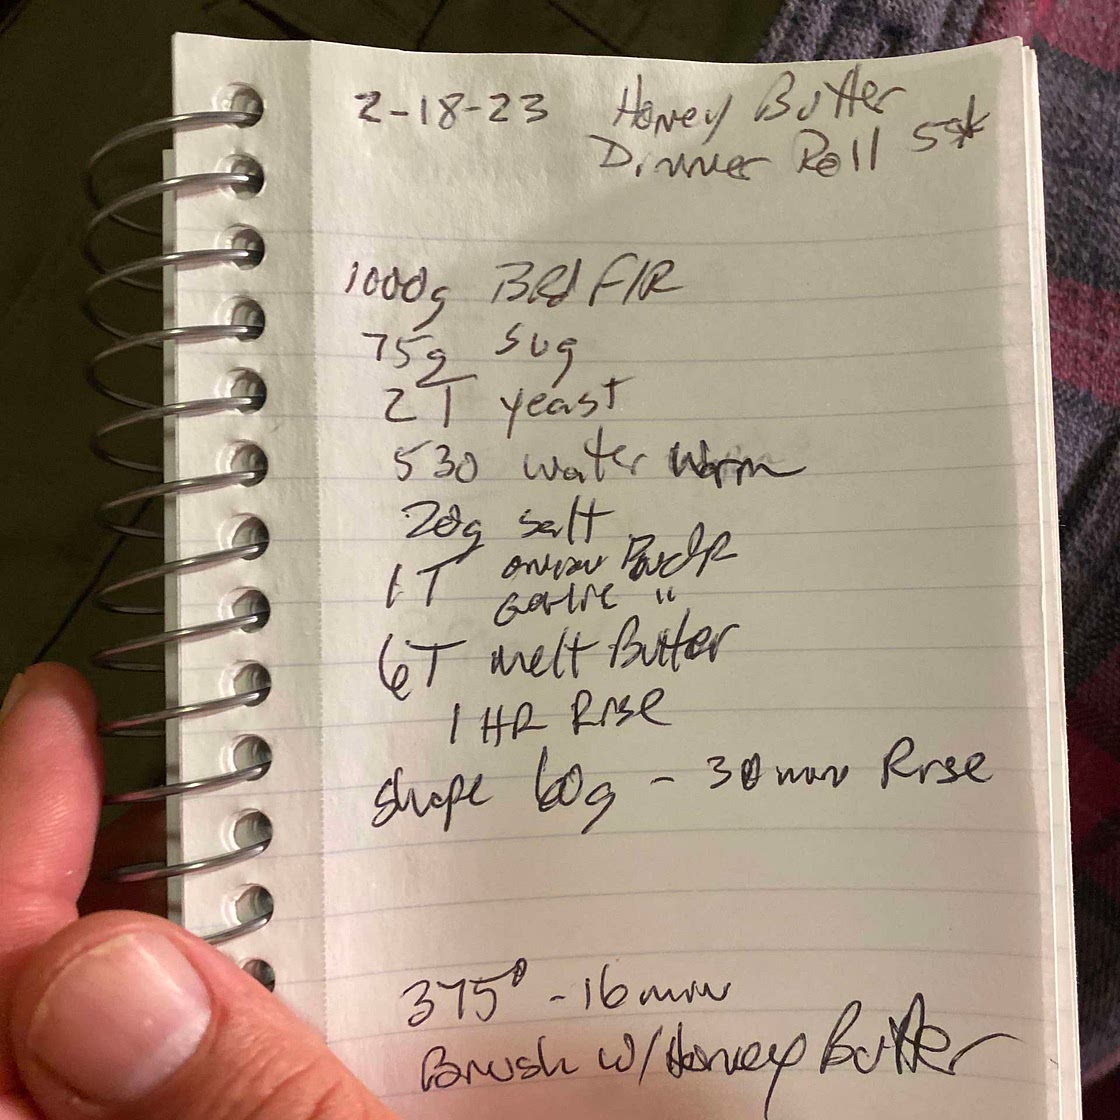 2-18-23 Honey Butter
Dinner Roll 5*
1000g BRd F/R
75g Sug
2T yeast
530 water warm
20g salt
1T onion Powdr
Garlic "
6T melt Butter
1 HR Rise
shape 60g - 30 min Rise
375° - 16 min
Brush w/Honey Butter